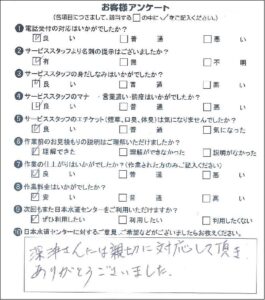 お客様アンケート
(各項目につきまして、該当する□の中に✓をご記入ください。)
❶電話受付の対応はいかがでしたか?
☑良い □普通 □悪い
❷サービススタッフより名刺の提示はございましたか?
☑有 □無 □不明
❸サービススタッフの身だしなみはいかがでしたか?
☑良い □普通 □悪い
❹サービススタッフのマナー・言葉遣い・態度はいかがでしたか?
☑良い □普通 □悪い
❺サービススタッフのエチケット(煙草、口臭、体臭)は気になりませんでしたか?
☑良い □普通 □気になった
❻作業前のお見積もりの説明はご理解いただけましたか?
☑理解できた □理解ができなかった □説明がなかった
❼作業の仕上がりはいかがでしたか?(作業された方のみご記入ください)
☑良い □普通 □悪い
❽作業料金はいかがでしたか?
☑安い □普通 □高い
❾次回もまた日本水道センターをご利用いただけますか?
☑ぜひ利用したい □利用したい □利用したくない
❿日本水道センターに対するご意見、ご希望などがございましたらお教えください。
深津さんには親切に対応して頂き
ありがとうございました。